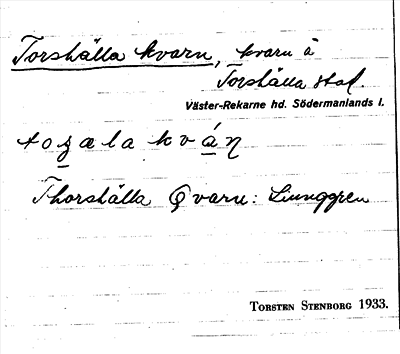 Torshälla kvarn, kvarn å
Torshälla stad.
Väster-Rekarne hd. Södermanlands l.
toʂæla kvάɳ
Thorshälla Qvarn: Ljunggren
TORSTEN STENBORG 1933.